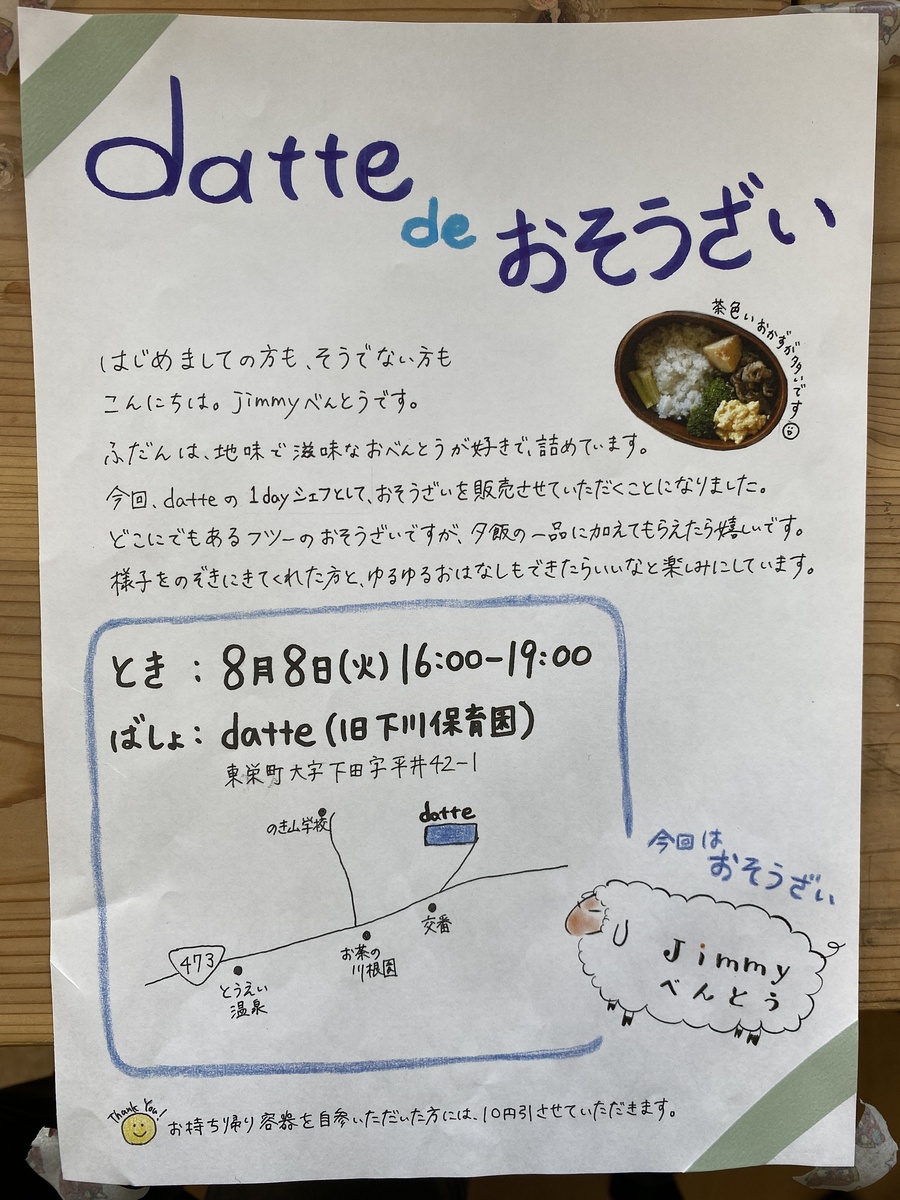 datte
de おそうざい
茶色いおかずが多いです
はじめましての方も、そうでない方も
こんにちは。Jimmyべんとうです。
ふだんは、地味で滋味なおべんとうが好きで、詰めています。
今回、datteの1dayシェフとして、おそうざいを販売させていただくことになりました。
どこにでもあるフツーのおそうざいですが、夕飯の一品に加えてもらえたら嬉しいです。
様子をのぞきにきてくれた方と、ゆるゆるおはなしもできたらいいなと楽しみにしています。
とき：8月8日(火)16:00-19:00
ばしょ：datte(旧下川保育園)
東栄町大字下田字平井42-1
のき山学校
datte
交番
お茶の
川根園
473
とうえい
温泉
今回は
おそうざい
Jimmy
べんとう
Thank You!
お持ち帰り容器を自参いただいた方には、10円引させていただきます。